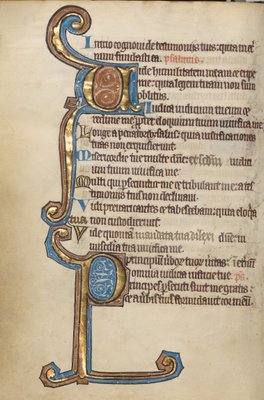 Initio cognovi de testimoniis tuis: quia in eter
num fundasti ea.
Vide humilitatem meam et eripe
me: quia legem tuam non sum
oblitus.
Iudica iudicium meum et
redime me: propter eloquium tuum vivifica me.
Longe a peccatoribus salus: quia iustificationes
tuas non exquisierunt.
Misericordie tue multe dñe: iudici
um tuum vivifica me.
Multi qui persecuntur me et tribulant me: a tes
timoniis tuis non declinavi.
Vidi prevaricantes et tabescebam: quia eloquia
tua non custodierunt.
Vide quoniam mandata tua dilexi dñe: in
misericordia tua vivifica me.
Principium verborum tuorum veritas: in eternum
omnia iudicia iusticie tue.
Principes persecuti sunt me gratis:
et a verbis tuis formidavit cor meum.